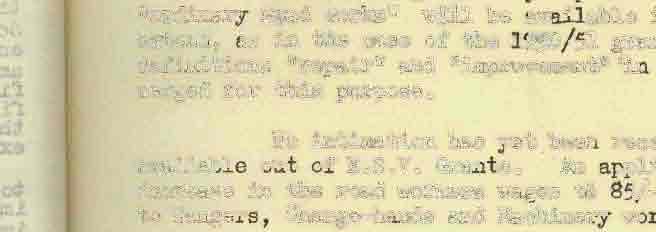 "ordinary road works" will be available i
urban, as in the case of the 1950/51 gran
definitions "repair" and "improvement" in
merged for this purpose.
No intimation has yet been rece
available out of E.S.V. Grants. An apply
increase in the road workers wages to 85/-
to Gangers, Charge-hands and Machinery wor